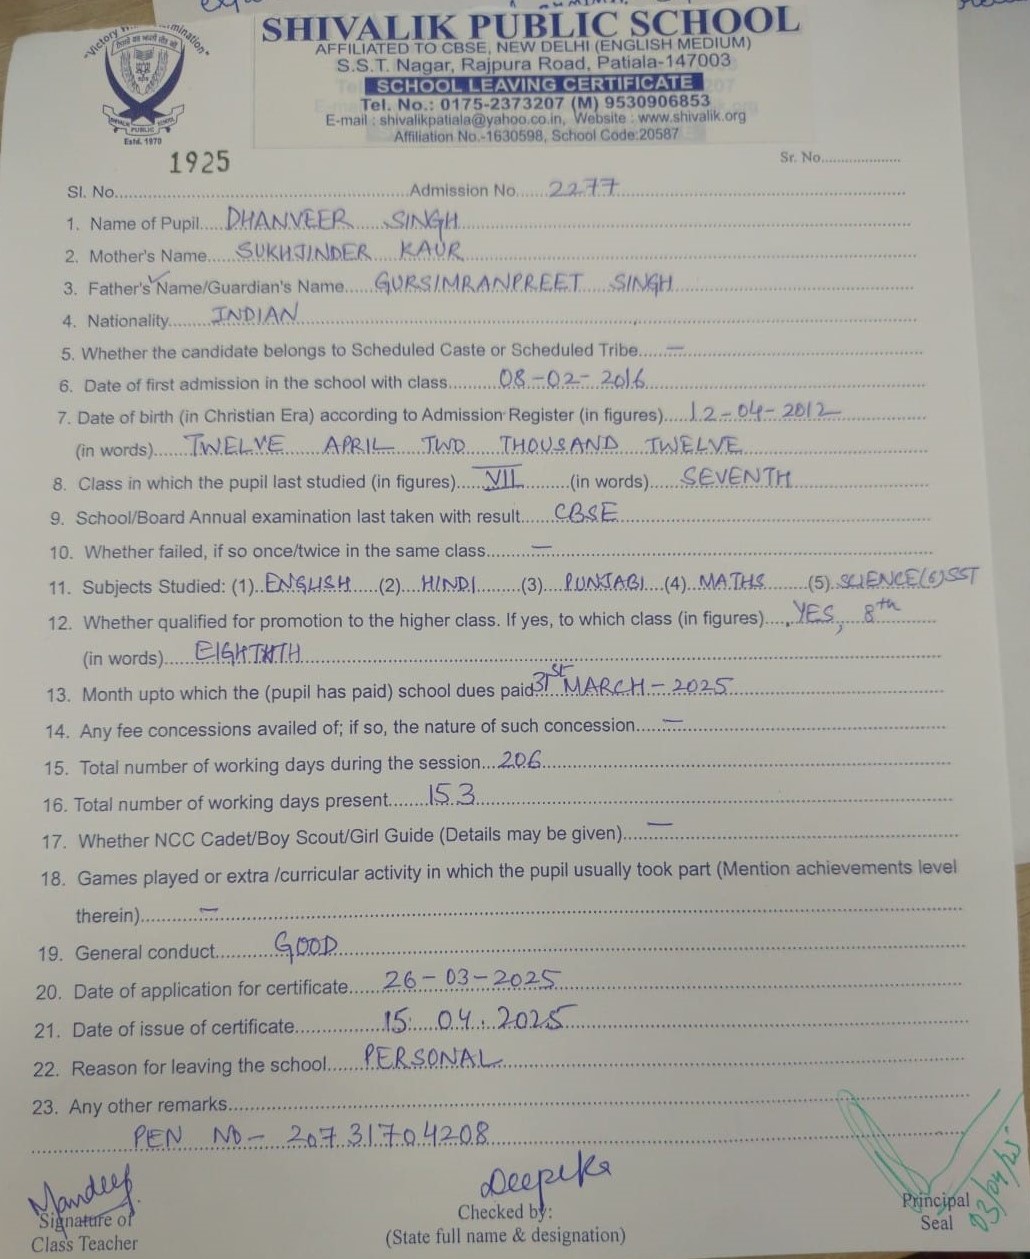 "Victory
mination"
PUBLIC
SCHOOL
Estd. 1970
SHIVALIK PUBLIC SCHOOL
AFFILIATED TO CBSE, NEW DELHI (ENGLISH MEDIUM)
S.S.T. Nagar, Rajpura Road, Patiala-147003
SCHOOL LEAVING CERTIFICATE
Tel. No.: 0175-2373207 (M) 9530906853
E-mail : shivalikpatiala@yahoo.co.in, Website : www.shivalik.org
Affiliation No.-1630598, School Code:20587
1925
Sr. No....................
Sl. No..................Admission No. 2277
1. Name of Pupil..... DHANVEER SINGH
2. Mother's Name..... SUKHJINDER KAUR
3. Father's Name/Guardian's Name..... GURSIMRANPREET SINGH
4. Nationality........ INDIAN
5. Whether the candidate belongs to Scheduled Caste or Scheduled Tribe.... —
6. Date of first admission in the school with class......... 08-02-2016
7. Date of birth (in Christian Era) according to Admission Register (in figures)..... 12-04-2012
(in words)..... TWELVE APRIL TWO THOUSAND TWELVE
8. Class in which the pupil last studied (in figures)..... VII .........(in words)..... SEVENTH
9. School/Board Annual examination last taken with result..... CBSE
10. Whether failed, if so once/twice in the same class........ —
11. Subjects Studied: (1) ENGLISH (2) HINDI (3) PUNJABI (4) MATHS (5) SCIENCE (6) SST
12. Whether qualified for promotion to the higher class. If yes, to which class (in figures)..... YES, 8th
(in words)..... EIGHTHTH
13. Month upto which the (pupil has paid) school dues paid 31st MARCH - 2025
14. Any fee concessions availed of; if so, the nature of such concession..... —
15. Total number of working days during the session... 206
16. Total number of working days present....... 153
17. Whether NCC Cadet/Boy Scout/Girl Guide (Details may be given)..... —
18. Games played or extra /curricular activity in which the pupil usually took part (Mention achievements level
therein)........... —
19. General conduct........... GOOD
20. Date of application for certificate...... 26-03-2025
21. Date of issue of certificate............... 15.04.2025
22. Reason for leaving the school...... PERSONAL
23. Any other remarks
PEN NO - 20731704208
Mandeep
Signature of
Class Teacher
Deepika
Checked by:
(State full name & designation)
Principal
Seal
03/04/25